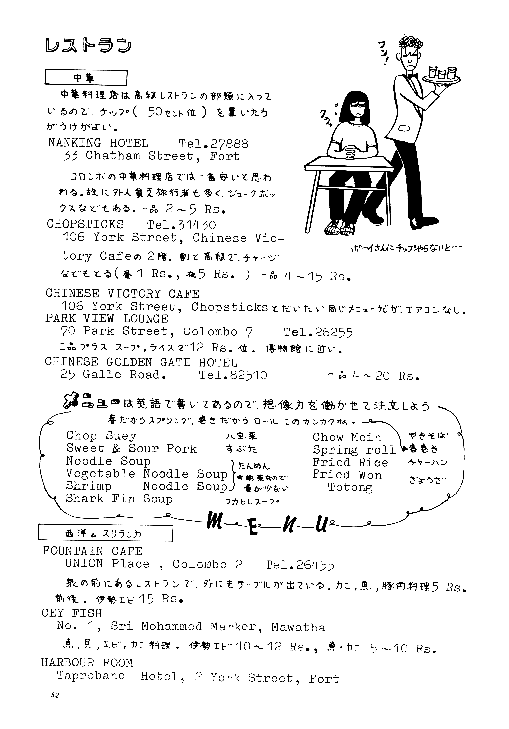 レストラン
中華
中華料理店は高級レストランの部類に入って
いるので、チップ( 50セント位 ) を置いたら
がうけがよい。
NANKING HOTEL Tel.27888
33 Chatham Street, Fort
コロンボの中華料理店では一番安いと思わ
れる。故に外人貧乏旅行者も多く、ジュークボッ
クスなどもある。一品 2〜5 Rs.
CHOPSTICKS Tel.31430
106 York Street, Chinese Vic-
tory Cafeの2階。割と高級で、チャージ
などもとる(昼1 Rs., 夜5 Rs. ) 一品4〜15 Rs.
CHINESE VICTORY CAFE
106 York Street, Chopsticksとだいたい同じメニューだが、エアコンなし。
PARK VIEW LOUNGE
70 Park Street, Colombo 7 Tel.26255
二品プラス スープ,ライスで12 Rs.位。博物館に近い。
CHINESE GOLDEN GATE HOTEL
25 Galle Road. Tel.82510 一品4〜20 Rs.
フン!
ククッ
ボーイさんにチップやらないと…
メニューは英語で書いてあるので、想像力を働かせて注文しよう
春だからスプリングで、巻きだからロール、このカンカクね。
Chop Suey 八宝菜
Sweet & Sour Pork すぶた
Noodle Soup
Vegetable Noodle Soup たんめん
Shrimp Noodle Soup
Shark Fin Soup フカヒレスープ
Chow Mein やきそば
Spring roll 春巻き
Fried Rice チャーハン
Fried Won Totong ぎょうざ
MENU
西洋&スリランカ
FOUNTAIN CAFE
UNION Place , Colombo 2 Tel.26455
駅の前にあるレストランで、外にもテーブルが出ている。カニ,魚,,豚肉料理5 Rs.
前後。伊勢エビ15 Rs.
OEY FISH
No. 1, Sri Mohammed Marker, Mawatha
魚,貝,エビ,カニ料理。伊勢エビ10〜12 Rs., 魚・カニ 5〜10 Rs.
HARBOUR ROOM
Taprobane Hotel, 2 York Street, Fort
52